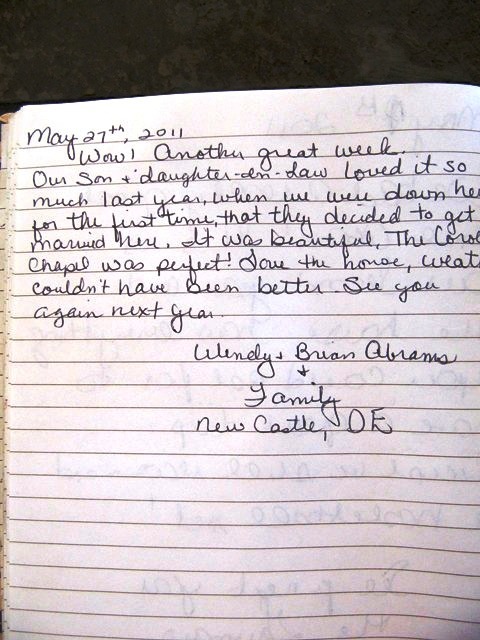 May 27th, 2011
Wow! Another great week.
Our Son + daughter-in-law Loved it so
much last year, when we were down he
for the first time, that they decided to get
married here. It was beautiful. The Coro
Chapel was perfect! Love the house, weat
couldn't have been better. See you
again next year.
Wendy + Brian Abrams
+
Family
New Castle, DE